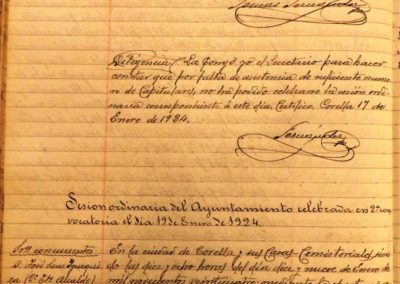 Diligencia. La pongo yo el Secretario para hacer
constar que por falta de asistencia de suficiente nume-
ro de Capitulares, no ha podido celebrarse la sesion ordi-
naria correspondiente á este dia. Certifico. Corella 17 de
Enero de 1924.
Sesion ordinaria del Ayuntamiento celebrada en 2ª con-
vocatoria el dia 19 de Enero de 1924.
Sres concurrentes
D. José Luis
(2º Tte Alcalde)
En la ciudad de Corella y sus Casas-Consistoriales, sien-
do las diez y ocho horas del dia diez y nueve de Enero de
mil novecientos veinticuatro